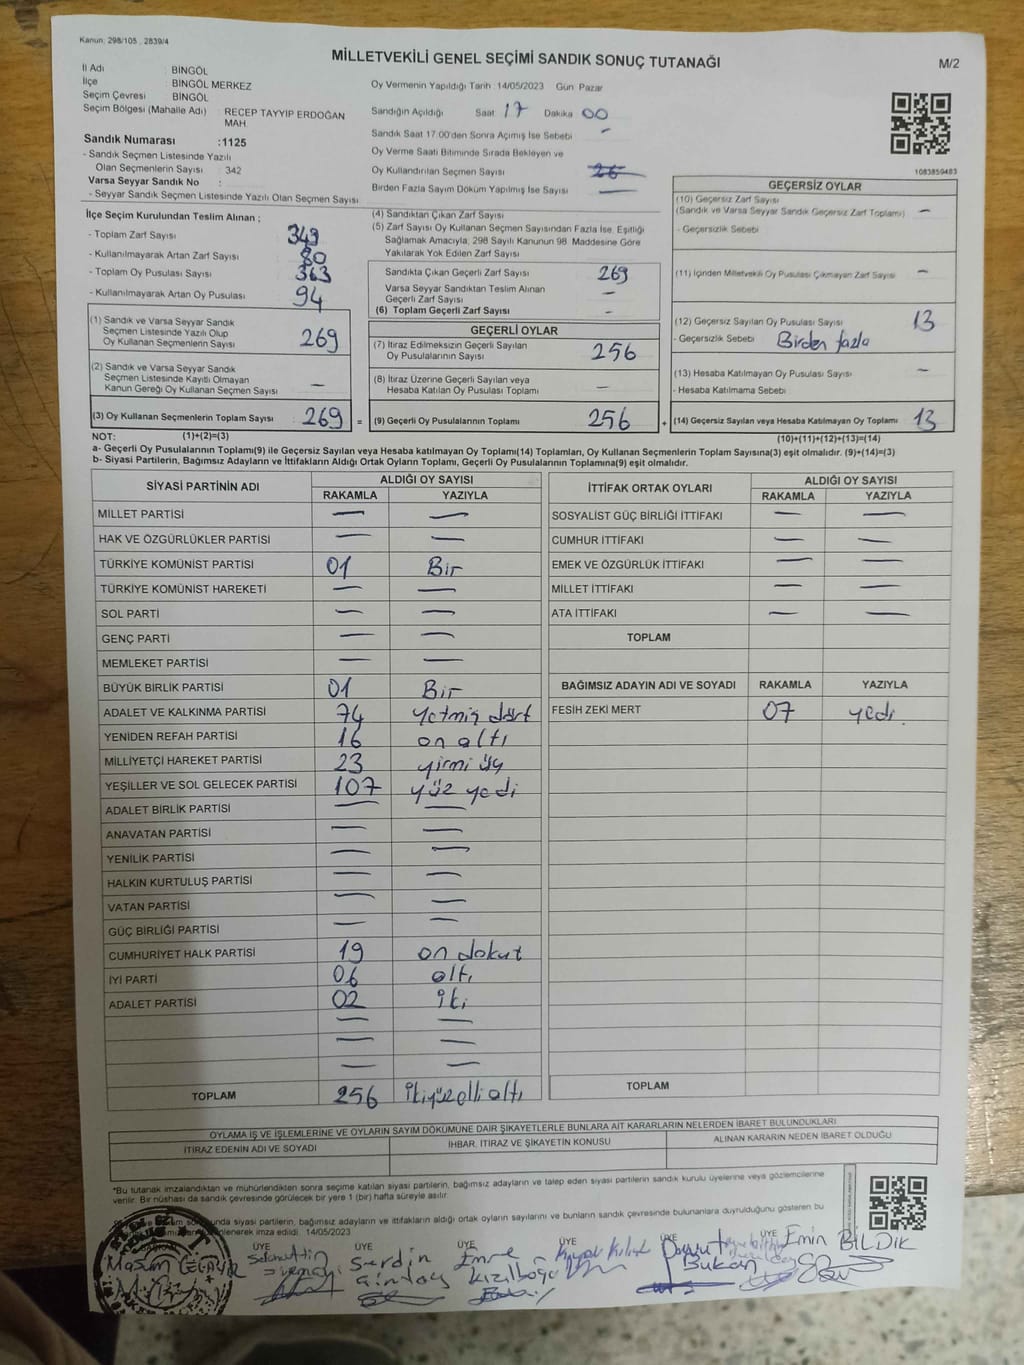 Kanun, 298/105 , 2839/4
MİLLETVEKİLİ GENEL SEÇİMİ SANDIK SONUÇ TUTANAĞI
M/2
İl Adı : BİNGÖL
İlçe : BİNGÖL MERKEZ
Seçim Çevresi : BİNGÖL
Seçim Bölgesi (Mahalle Adı) : RECEP TAYYIP ERDOĞAN
MAH.
Sandık Numarası :1125
- Sandık Seçmen Listesinde Yazılı
Olan Seçmenlerin Sayısı : 342
Varsa Seyyar Sandık No :
- Seyyar Sandık Seçmen Listesinde Yazılı Olan Seçmen Sayısı
Oy Vermenin Yapıldığı Tarih :14/05/2023 Gün Pazar
Sandığın Açıldığı Saat 17 Dakika 00
Sandık Saat 17:00'den Sonra Açımış İse Sebebi -
Oy Verme Saati Bitiminde Sırada Bekleyen ve
Oy Kullandırılan Seçmen Sayısı
Birden Fazla Sayım Döküm Yapılmış İse Sayısı —
1083859483
İlçe Seçim Kurulundan Teslim Alınan ;
- Toplam Zarf Sayısı 349
- Kullanılmayarak Artan Zarf Sayısı 80
- Toplam Oy Pusulası Sayısı 363
- Kullanılmayarak Artan Oy Pusulası 94
(1) Sandık ve Varsa Seyyar Sandık
Seçmen Listesinde Yazılı Olup
Oy Kullanan Seçmenlerin Sayısı : 269
(2) Sandık ve Varsa Seyyar Sandık
Seçmen Listesinde Kayıtlı Olmayan
Kanun Gereği Oy Kullanan Seçmen Sayısı : —
(3) Oy Kullanan Seçmenlerin Toplam Sayısı : 269 =
(4) Sandıktan Çıkan Zarf Sayısı
(5) Zarf Sayısı Oy Kullanan Seçmen Sayısından Fazla İse, Eşitliği
Sağlamak Amacıyla; 298 Sayılı Kanunun 98. Maddesine Göre
Yakılarak Yok Edilen Zarf Sayısı
Sandıkta Çıkan Geçerli Zarf Sayısı 269
Varsa Seyyar Sandıktan Teslim Alınan
Geçerli Zarf Sayısı —
(6) Toplam Geçerli Zarf Sayısı -
GEÇERLİ OYLAR
(7) İtiraz Edilmeksizin Geçerli Sayılan
Oy Pusulalarının Sayısı : 256
(8) İtiraz Üzerine Geçerli Sayılan veya
Hesaba Katılan Oy Pusulası Toplamı : —
(9) Geçerli Oy Pusulalarının Toplamı : 256 +
GEÇERSİZ OYLAR
(10) Geçersiz Zarf Sayısı
(Sandık ve Varsa Seyyar Sandık Geçersiz Zarf Toplamı) —
- Geçersizlik Sebebi
(11) İçinden Milletvekili Oy Pusulası Çıkmayan Zarf Sayısı —
(12) Geçersiz Sayılan Oy Pusulası Sayısı 13
- Geçersizlik Sebebi Birden fazla
(13) Hesaba Katılmayan Oy Pusulası Sayısı —
- Hesaba Katılmama Sebebi
(14) Geçersiz Sayılan veya Hesaba Katılmayan Oy Toplamı 13
NOT: (1)+(2)=(3)
(10)+(11)+(12)+(13)=(14)
a- Geçerli Oy Pusulalarının Toplamı(9) ile Geçersiz Sayılan veya Hesaba katılmayan Oy Toplamı(14) Toplamları, Oy Kullanan Seçmenlerin Toplam Sayısına(3) eşit olmalıdır. (9)+(14)=(3)
b- Siyasi Partilerin, Bağımsız Adayların ve İttifakların Aldığı Ortak Oyların Toplamı, Geçerli Oy Pusulalarının Toplamına(9) eşit olmalıdır.
SİYASİ PARTİNİN ADI ALDIĞI OY SAYISI
RAKAMLA YAZIYLA
MİLLET PARTİSİ — —
HAK VE ÖZGÜRLÜKLER PARTİSİ — —
TÜRKİYE KOMÜNİST PARTİSİ 01 Bir
TÜRKİYE KOMÜNİST HAREKETİ — —
SOL PARTİ — —
GENÇ PARTİ — —
MEMLEKET PARTİSİ — —
BÜYÜK BİRLİK PARTİSİ 01 Bir
ADALET VE KALKINMA PARTİSİ 74 yetmiş dört
YENİDEN REFAH PARTİSİ 16 on altı
MİLLİYETÇİ HAREKET PARTİSİ 23 yirmi üç
YEŞİLLER VE SOL GELECEK PARTİSİ 107 yüz yedi
ADALET BİRLİK PARTİSİ — —
ANAVATAN PARTİSİ — —
YENİLİK PARTİSİ — —
HALKIN KURTULUŞ PARTİSİ — —
VATAN PARTİSİ — —
GÜÇ BİRLİĞİ PARTİSİ — —
CUMHURİYET HALK PARTİSİ 19 on dokuz
İYİ PARTİ 06 altı
ADALET PARTİSİ 02 iki
— —
— —
— —
TOPLAM 256 ikiyüzelli altı
İTTİFAK ORTAK OYLARI ALDIĞI OY SAYISI
RAKAMLA YAZIYLA
SOSYALİST GÜÇ BİRLİĞİ İTTİFAKI — —
CUMHUR İTTİFAKI — —
EMEK VE ÖZGÜRLÜK İTTİFAKI — —
MİLLET İTTİFAKI — —
ATA İTTİFAKI — —
TOPLAM
BAĞIMSIZ ADAYIN ADI VE SOYADI RAKAMLA YAZIYLA
FESİH ZEKİ MERT 07 yedi.
TOPLAM
OYLAMA İŞ VE İŞLEMLERİNE VE OYLARIN SAYIM DÖKÜMÜNE DAİR ŞİKAYETLERLE BUNLARA AİT KARARLARIN NELERDEN İBARET BULUNDUKLARI
İTİRAZ EDENİN ADI VE SOYADI İHBAR, İTİRAZ VE ŞİKAYETİN KONUSU ALINAN KARARIN NEDEN İBARET OLDUĞU
"Bu tutanak imzalandıktan ve mühürlendikten sonra seçime katılan siyasi partilerin, bağımsız adayların ve talep eden siyasi partilerin sandık kurulu üyelerine veya gözlemcilerine
verilir. Bir nüshası da sandık çevresinde görülecek bir yere 1 (bir) hafta süreyle asılır.
siyasi partilerin, bağımsız adayların ve ittifakların aldığı ortak oyların sayılarını ve bunların sandık çevresinde bulunanlara duyrulduğunu gösteren bu
imza edildi. 14/05/2023
ÜYE ÜYE ÜYE ÜYE
Serdin Emre Davut Emin BİLDİK
Bukan